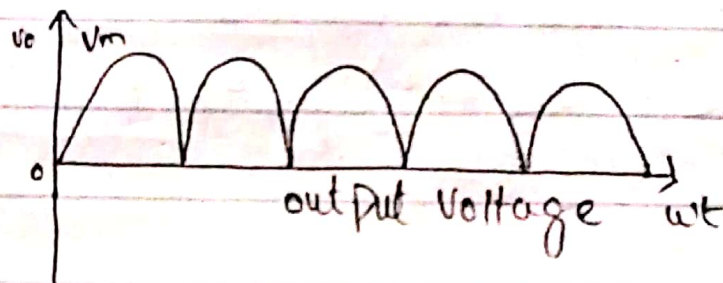 Vo Vm
0
output voltage wt